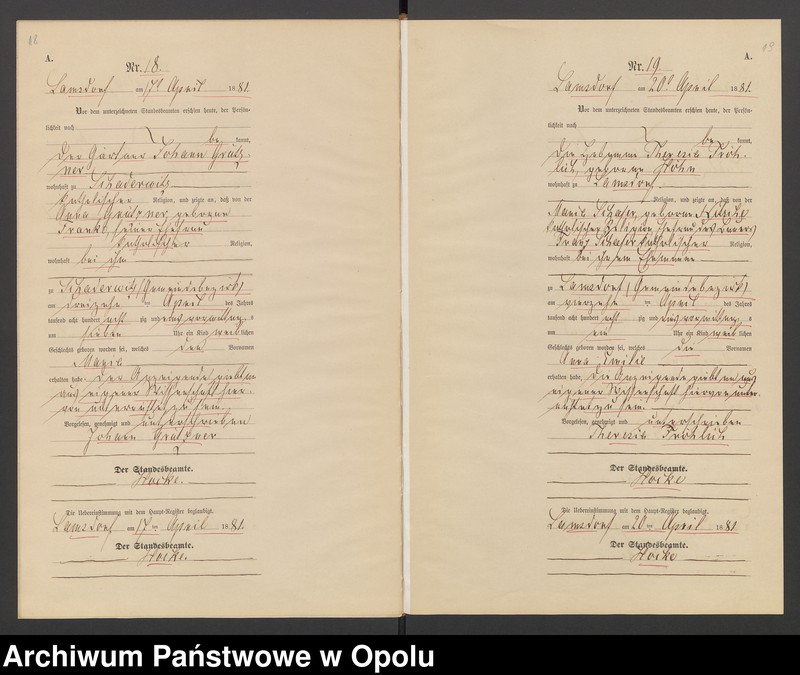 18
A.
Nr. 18.
Lamsdorf am 17t April 1881.
Vor dem unterzeichneten Standesbeamten erschien heute, der Persön-
lichkeit nach
be kannt,
der Gärtner Johann Grütz-
ner
wohnhaft zu Schaderwitz
katholischer Religion, und zeigte an, daß von der
Grutzner, geborene
Franke, seiner Ehefrau
katholischer Religion,
wohnhaft bei ihm
zu Schaderwitz (Gemeindebezirk)
am dreizehn ten April des Jahres
tausend acht hundert acht zig und eins Vormittag s
um sieben Uhr ein Kind weib lichen
Geschlechts geboren worden sei, welches den Vornamen
Maria
erhalten habe. Der Anzeigende giebt an
aus eigener Wissenschaft hier-
von unterrichtet zu sein.
Vorgelesen, genehmigt und unterschrieben
Johann Grutzner
Der Standesbeamte.
Hocke.
Die Uebereinstimmung mit dem Haupt-Register beglaubigt.
Lamsdorf am 17 ten April 1881.
Der Standesbeamte.
Hocke.
19
A.
Nr. 19.
Lamsdorf am 20t April 1881.
Vor dem unterzeichneten Standesbeamten erschien heute, der Persön-
lichkeit nach
be kannt,
die Hebamme Theresia Fröh-
lich, geborene Höhn
wohnhaft zu Lamsdorf
Religion, und zeigte an, daß von der
Maria Schafer, geborene
katholischer Religion Ehefrau des
Franz Schafer katholischer Religion,
wohnhaft bei ihrem Ehemanne
zu Lamsdorf (Gemeindebezirk)
am vierzehn ten April des Jahres
tausend acht hundert acht zig und eins Vormittag s
um ein Uhr ein Kind weib lichen
Geschlechts geboren worden sei, welches die Vornamen
Anna Emilie
erhalten habe. Die Anzeigende giebt an aus
eigener Wissenschaft hiervon unter-
richtet zu sein.
Vorgelesen, genehmigt und unterschrieben
Theresia Fröhlich
Der Standesbeamte.
Hocke
Die Uebereinstimmung mit dem Haupt-Register beglaubigt.
Lamsdorf am 20 ten April 1881
Der Standesbeamte.
Hocke
Archiwum Państwowe w Opolu